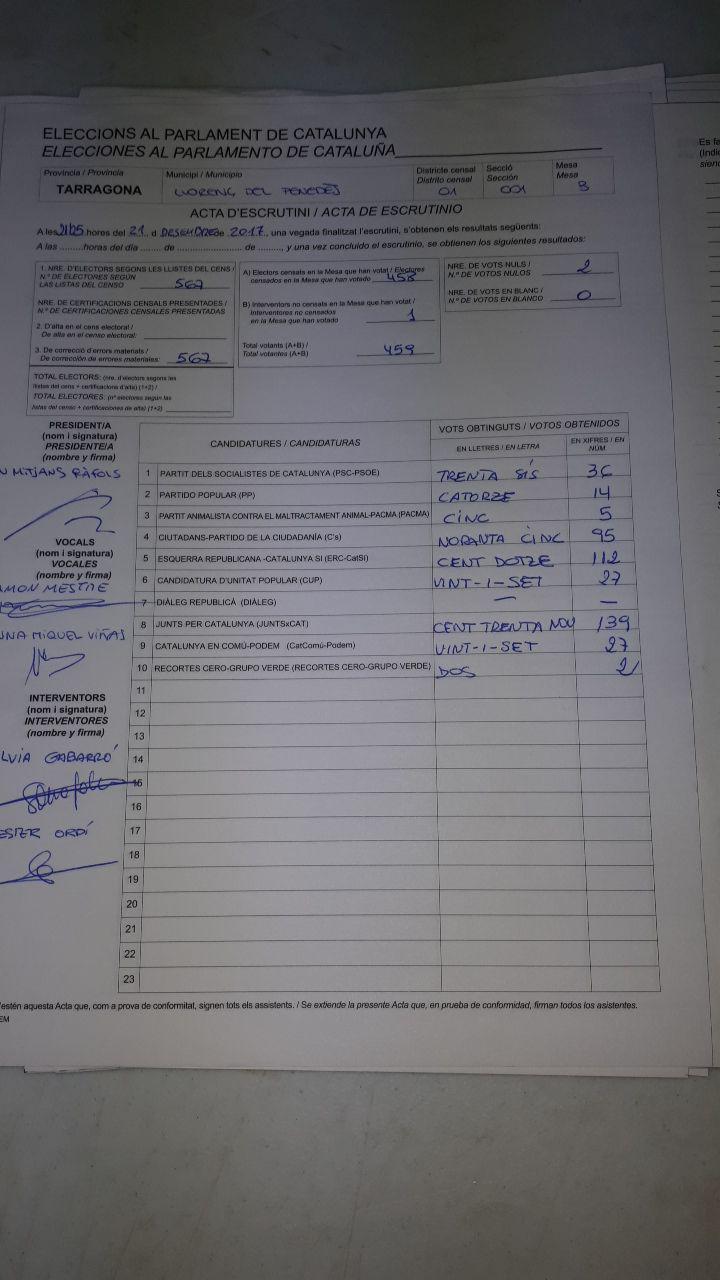 ELECCIONS AL PARLAMENT DE CATALUNYA
ELECCIONES AL PARLAMENTO DE CATALUÑA
Província / Provincia
TARRAGONA
Municipi / Municipio
LLORENÇ DEL PENEDÈS
Districte censal
Distrito censal
01
Secció
Sección
001
Mesa
Mesa
B
ACTA D'ESCRUTINI / ACTA DE ESCRUTINIO
A les 21:25 hores del 21 d DESEMBRE de 2017, una vegada finalitzat l'escrutini, s'obtenen els resultats següents:
A las ........horas del día ....... de ................. de ........, y una vez concluido el escrutinio, se obtienen los siguientes resultados:
1. NRE. D'ELECTORS SEGONS LES LLISTES DEL CENS /
N.º DE ELECTORES SEGÚN
LAS LISTAS DEL CENSO 567
NRE. DE CERTIFICACIONS CENSALS PRESENTADES /
N.º DE CERTIFICACIONES CENSALES PRESENTADAS
2. D'alta en el cens electoral /
De alta en el censo electoral:
3. De correcció d'errors materials /
De corrección de errores materiales: 567
TOTAL ELECTORS: (nre. d'electors segons les
llistes del cens + certificacions d'alta) (1+2) /
TOTAL ELECTORES: (nº electores según las
listas del censo + certificaciones de alta) (1+2)
A) Electors censats en la Mesa que han votat / Electores
censados en la Mesa que han votado 458
B) Interventors no censats en la Mesa que han votat /
Interventores no censados
en la Mesa que han votado 1
Total votants (A+B) /
Total votantes (A+B) 459
NRE. DE VOTS NULS /
N.º DE VOTOS NULOS 2
NRE. DE VOTS EN BLANC /
N.º DE VOTOS EN BLANCO 0
PRESIDENT/A
(nom i signatura)
PRESIDENTE/A
(nombre y firma)
MITJANS RÀFOLS
VOCALS
(nom i signatura)
VOCALES
(nombre y firma)
AMON MESTRE
UNA MIQUEL VIÑAS
INTERVENTORS
(nom i signatura)
INTERVENTORES
(nombre y firma)
LVIA GABARRÓ
ESTER ORDÍ
CANDIDATURES / CANDIDATURAS
VOTS OBTINGUTS / VOTOS OBTENIDOS
EN LLETRES / EN LETRA
EN XIFRES / EN NÚM
1 PARTIT DELS SOCIALISTES DE CATALUNYA (PSC-PSOE) TRENTA SIS 36
2 PARTIDO POPULAR (PP) CATORZE 14
3 PARTIT ANIMALISTA CONTRA EL MALTRACTAMENT ANIMAL-PACMA (PACMA) CINC 5
4 CIUTADANS-PARTIDO DE LA CIUDADANÍA (C's) NORANTA CINC 95
5 ESQUERRA REPUBLICANA -CATALUNYA SÍ (ERC-CatSí) CENT DOTZE 112
6 CANDIDATURA D'UNITAT POPULAR (CUP) VINT-I-SET 27
7 DIÀLEG REPUBLICÀ (DIÀLEG) — —
8 JUNTS PER CATALUNYA (JUNTSxCAT) CENT TRENTA NOU 139
9 CATALUNYA EN COMÚ-PODEM (CatComú-Podem) VINT-I-SET 27
10 RECORTES CERO-GRUPO VERDE (RECORTES CERO-GRUPO VERDE) DOS 2
11
12
13
14
15
16
17
18
19
20
21
22
23
estén aquesta Acta que, com a prova de conformitat, signen tots els assistents. / Se extiende la presente Acta que, en prueba de conformidad, firman todos los asistentes.
EM
Es fa
(Indi
sien